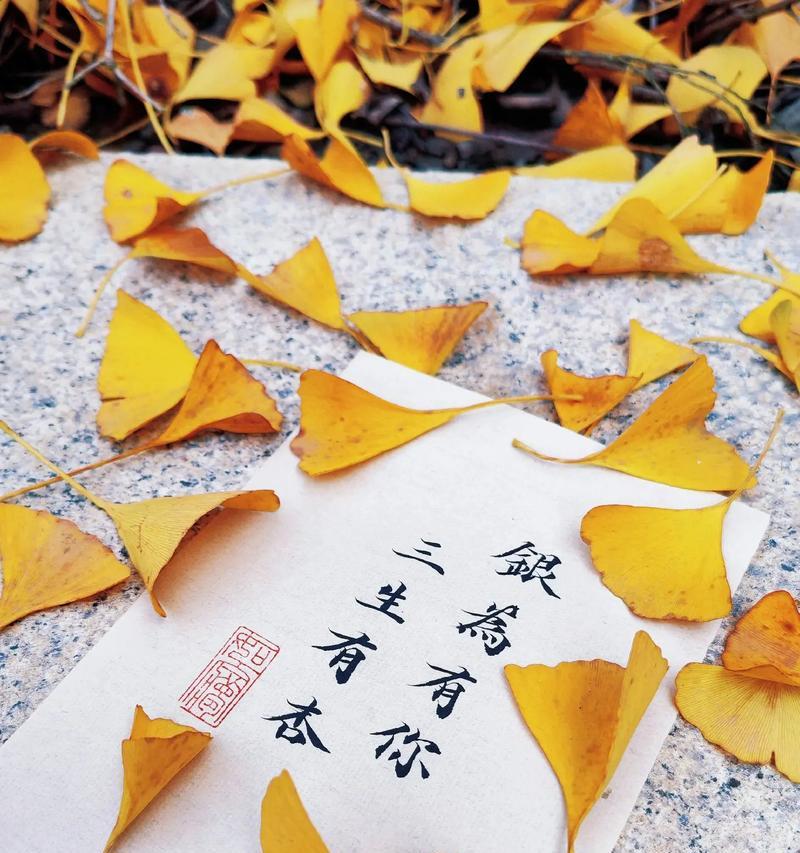 銀為有你
三生有杏